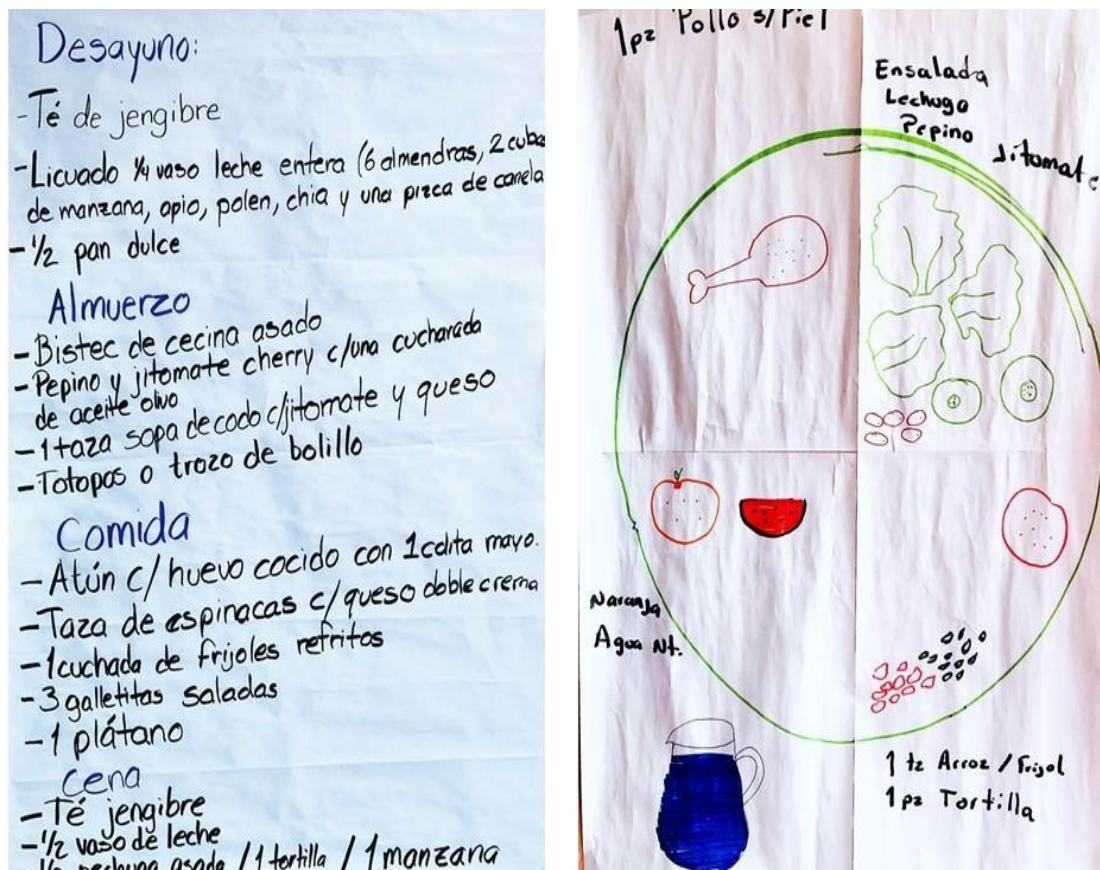 Desayuno:
-Té de jengibre
-Licuado 1/4 vaso leche entera (6 almendras, 2 cubo
de manzana, apio, polen, chia y una pizca de canela
-1/2 pan dulce
Almuerzo
-Bistec de cecina asado
-Pepino y jitomate cherry c/una cucharada
de aceite olivo
-1 taza sopa de codo c/jitomate y queso
-Totopos o trozo de bolillo
Comida
-Atún c/ huevo cocido con 1 cdita mayo.
-Taza de espinacas c/queso doble crema
-1 cuchada de frijoles refritos
-3 galletitas saladas
-1 plátano
Cena
-Té jengibre
-1/2 vaso de leche
-1/2 pechuga asada / 1 tortilla / 1 manzana
1 pz Pollo s/Piel
Ensalada
Lechuga
Pepino
Jitomate
Naranja
Agua Nt.
1 tz Arroz / Frijol
1 pz Tortilla